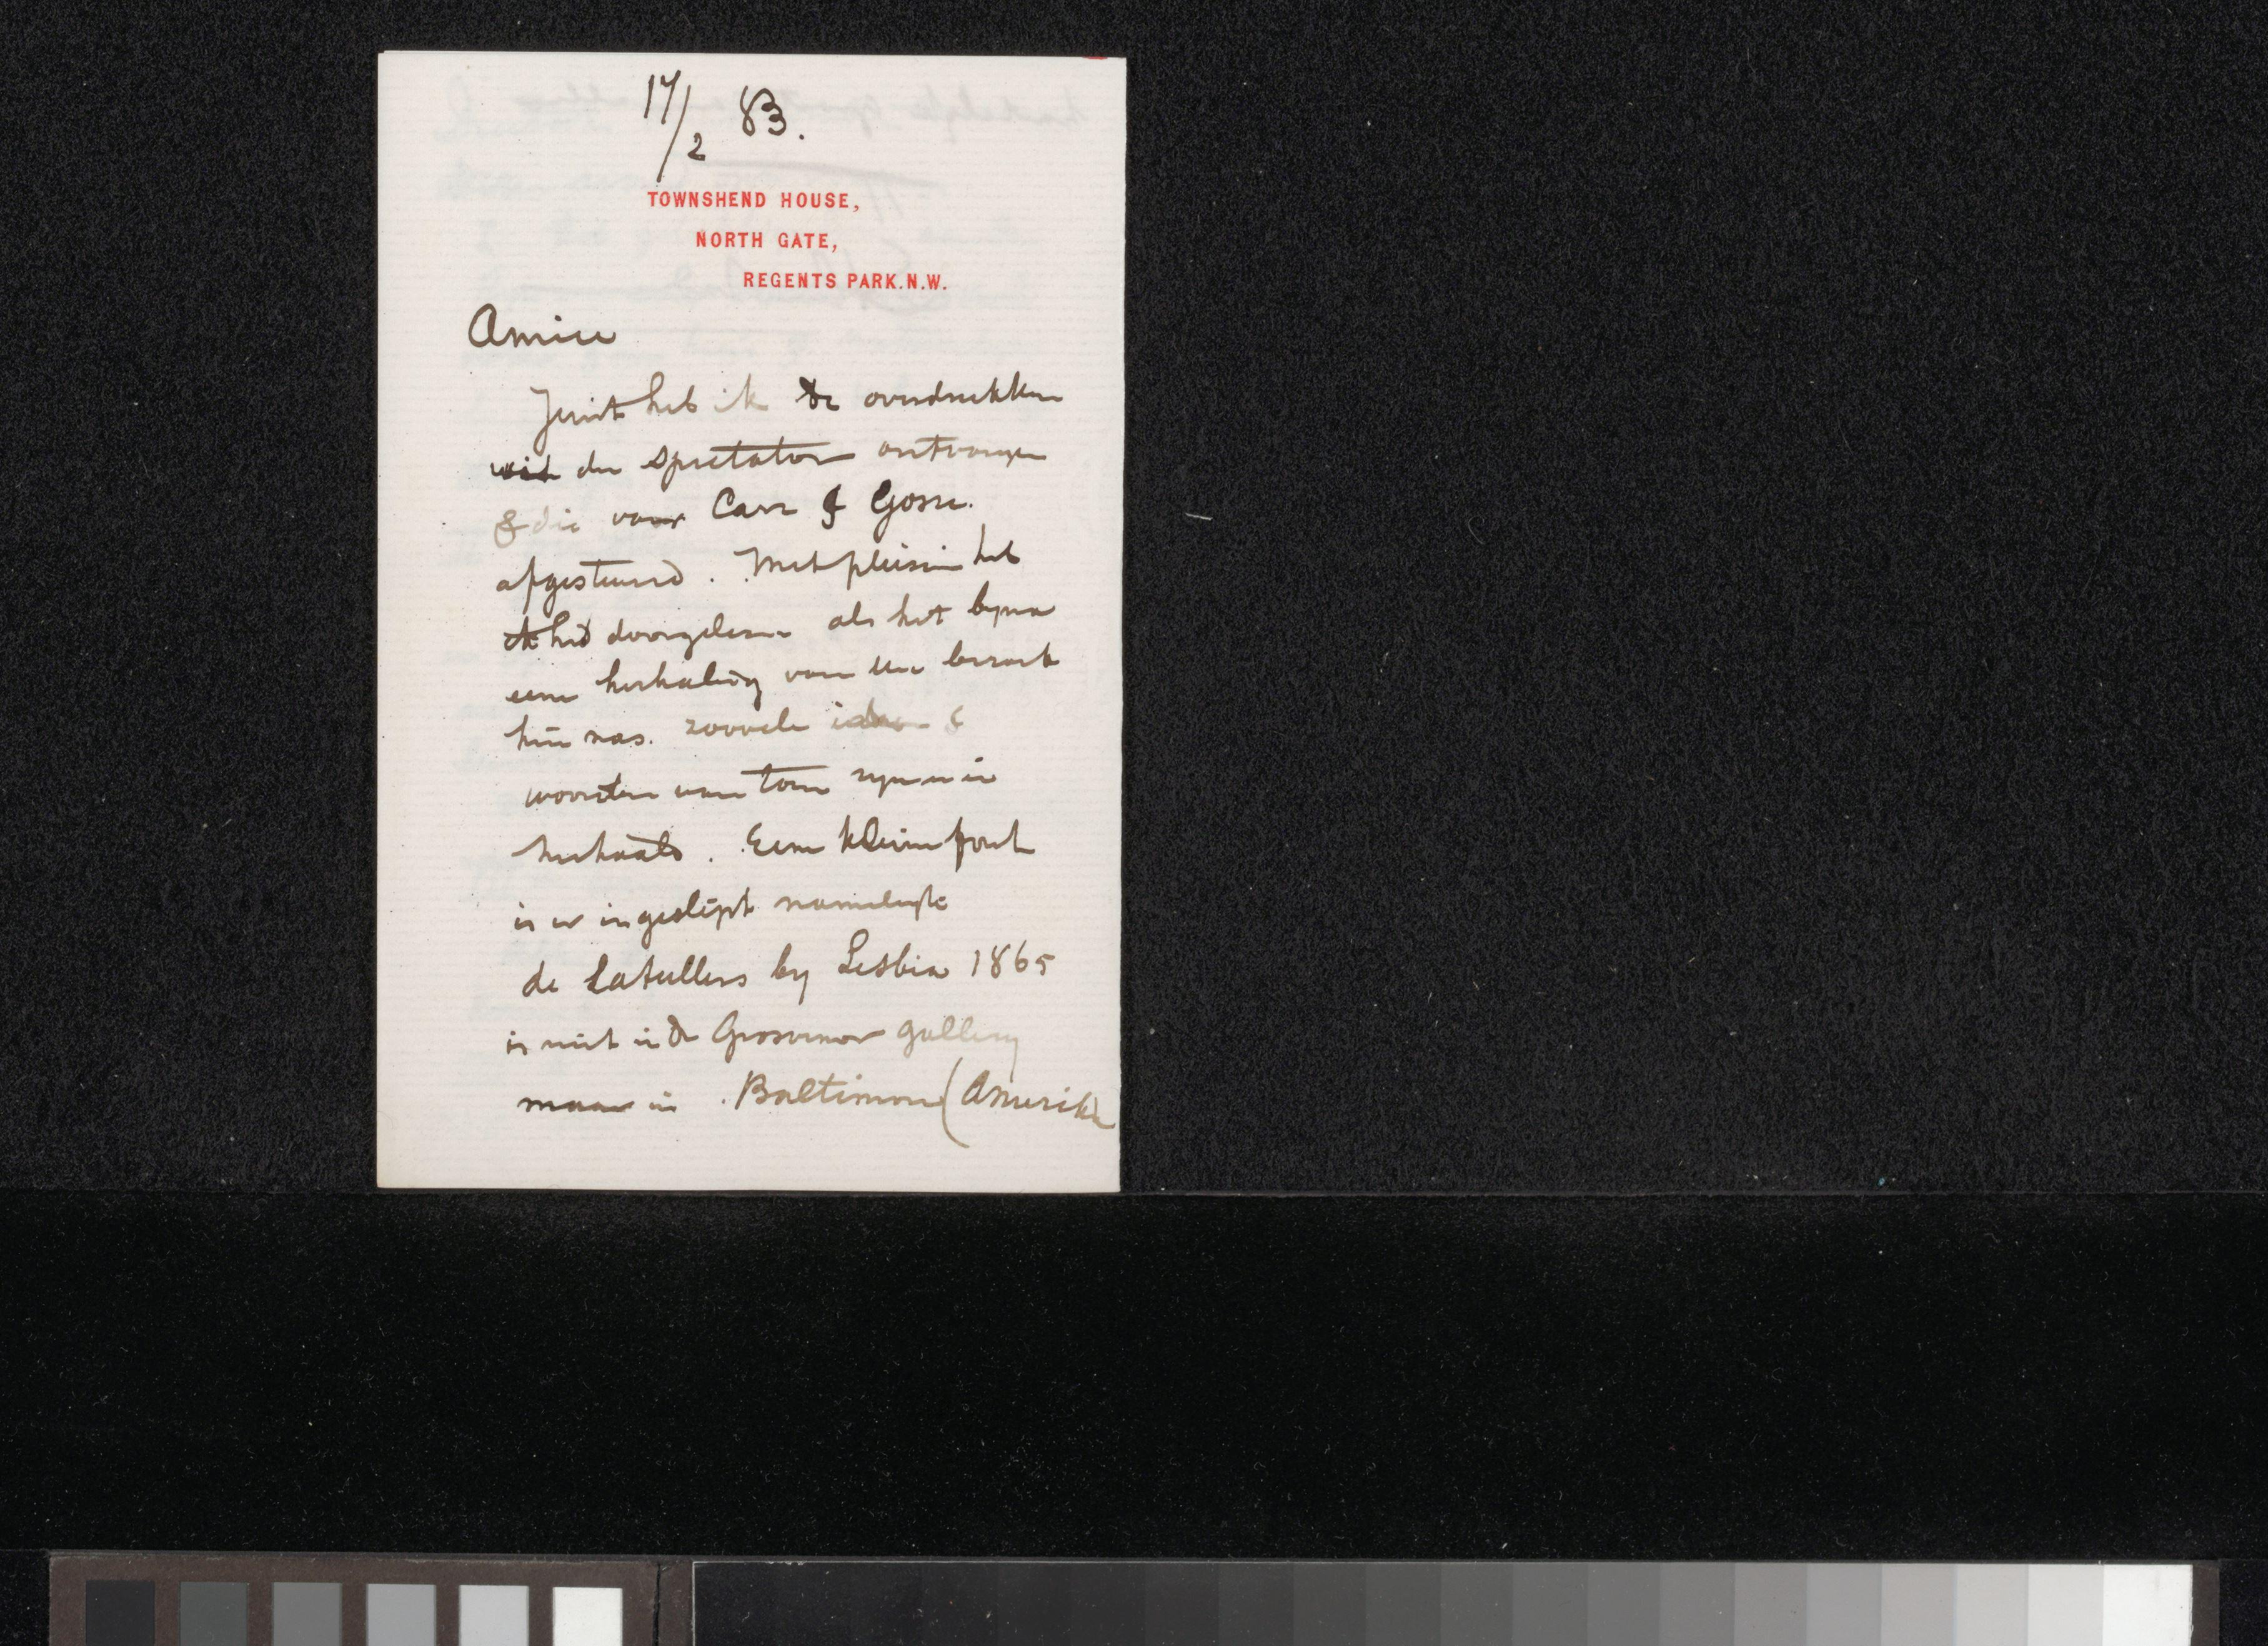 17/2 83.
TOWNSHEND HOUSE,
NORTH GATE,
REGENTS PARK.N.W.
Amice
Juist heb ik de overdrukken
uit den spectator ontvangen
& die voor Carr & Gosse.
afgestuurd. Met pleisier heb
ik het doorgelesen als het byna
eene herhaling van uw bezoek
hier was. zoovele ideen &
woorden van toen zyn er in
herhaald. Eene kleine fout
is er ingeslipt namelijk
de Catullus by Lesbia 1865
is niet in de Grosvenor gallery
maar in Baltimore (Amerika